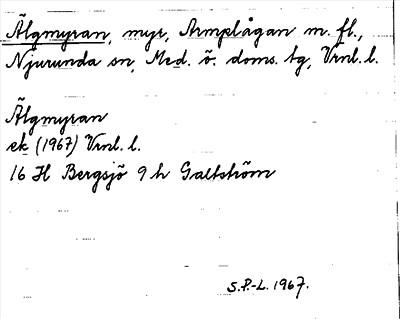 Älgmyran, myr, Armplågan m. fl.,
Njurunda sn, Med. ö. doms. tg, Vrnl. l.
Älgmyran
ek (1967) Vrnl. l.
16 H Bergsjö 9 h Galtström
S.P.-L. 1967.